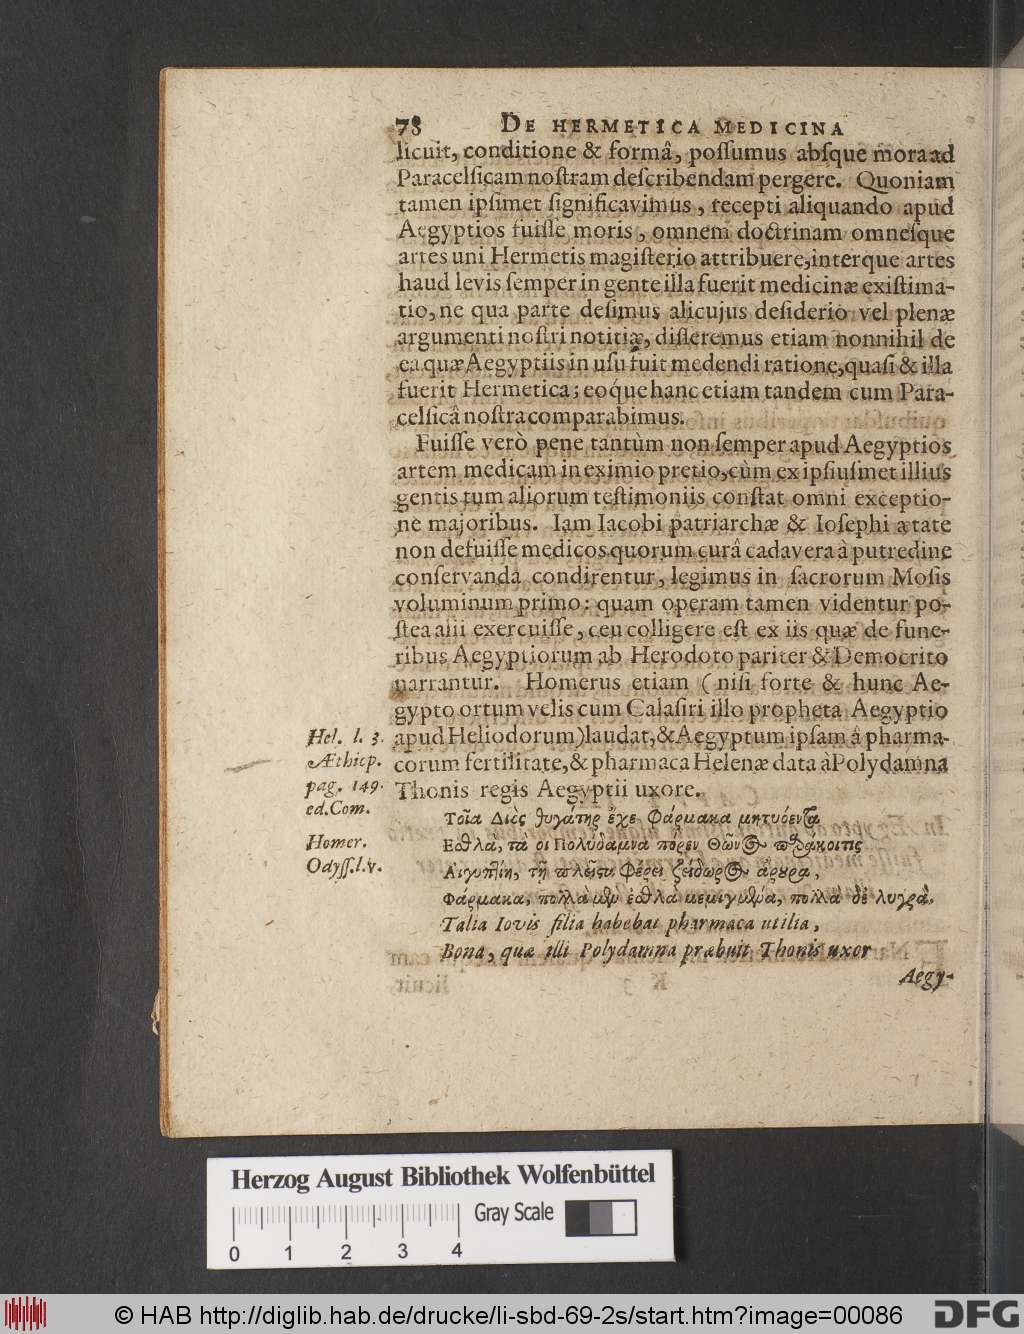 78 DE HERMETICA MEDICINA
licuit, conditione & formâ, poſſumus abſque mora ad
Paracelſicam noſtram deſcribendam pergere. Quoniam
tamen ipſimet ſignificavimus, recepti aliquando apud
Aegyptios fuiſſe moris, omnem doctrinam omneſque
artes uni Hermetis magiſterio attribuere, interque artes
haud levis ſemper in gente illa fuerit medicinæ exiſtima-
tio, ne qua parte deſimus alicujus deſiderio vel plenæ
argumenti noſtri notitiæ, diſſeremus etiam nonnihil de
ea quæ Aegyptiis in uſu fuit medendi ratione, quaſi & illa
fuerit Hermetica; eoque hanc etiam tandem cum Para-
celſicâ noſtra comparabimus.
Fuiſſe verò pene tantùm non ſemper apud Aegyptios
artem medicam in eximio pretio, cùm ex ipſiuſmet illius
gentis tum aliorum teſtimoniis conſtat omni exceptio-
ne majoribus. Iam Iacobi patriarchæ & Ioſephi ætate
non defuiſſe medicos quorum curâ cadavera à putredine
conſervanda condirentur, legimus in ſacrorum Moſis
voluminum primo: quam operam tamen videntur po-
ſtea alii exercuiſſe, ceu colligere eſt ex iis quæ de fune-
ribus Aegyptiorum ab Herodoto pariter & Democrito
narrantur. Homerus etiam (niſi forte & hunc Ae-
gypto ortum velis cum Calaſiri illo propheta Aegyptio
Hel. l. 3. apud Heliodorum) laudat, & Aegyptum ipſam â pharma-
Æthiop. corum fertilitate, & pharmaca Helenæ data à Polydamna
pag. 149. Thonis regis Aegyptii uxore.
ed. Com.
Τοῖα Διὸς θυγάτηρ ἔχε Φάρμακα μητιόεντα
Homer. Εσθλὰ, τὰ οι Πολύδαμνα πόρεν Θῶνος παράκοιτις
Odyſſ. l. δ. Αἰγυπτίη, τῇ πλεῖστα Φέρει ζείδωρος ἄρουρα,
Φάρμακα, πολλὰ μὲν ἐσθλὰ μεμιγμένα, πολλὰ δὲ λυγρά.
Talia Iovis filia habebat pharmaca utilia,
Bona, quæ illi Polydamna præbuit Thonis uxor
Aegy-
Herzog August Bibliothek Wolfenbüttel
Gray Scale
0 1 2 3 4
© HAB http://diglib.hab.de/drucke/li-sbd-69-2s/start.htm?image=00086
DFG